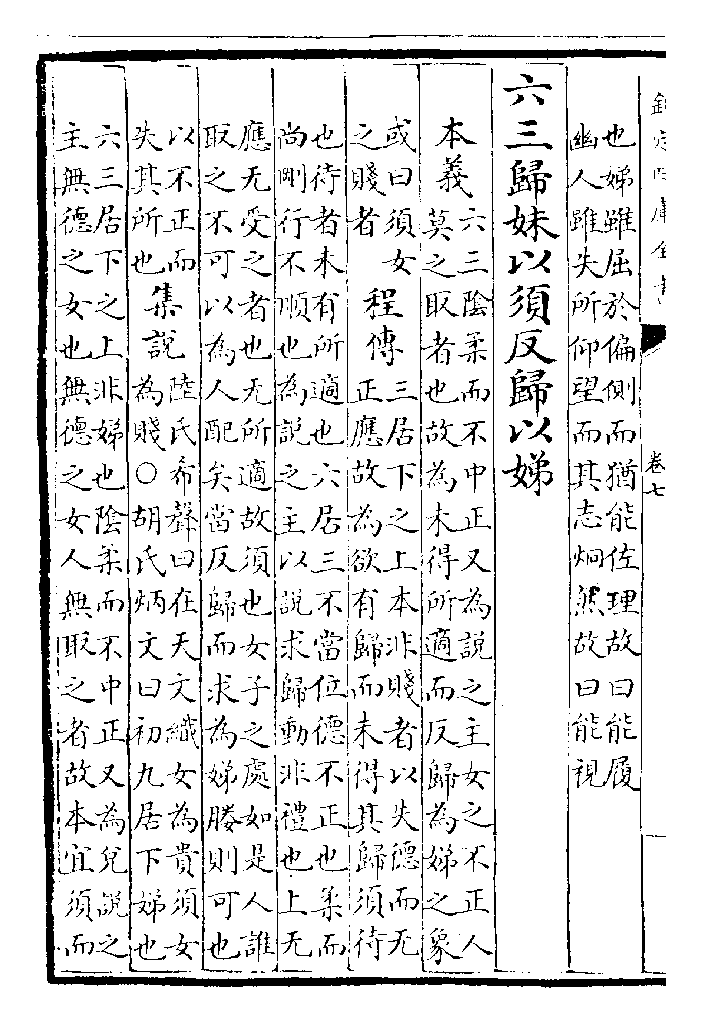 欽定四庫全書
卷七
也娣雖屈於偏側而猶能佐理故曰能履
幽人雖失所仰望而其志炯然故曰能視
六三歸妹以須反歸以娣
本義
六三陰柔而不中正又為說之主女之不正人
莫之取者也故為未得所適而反歸為娣之象
或曰須女
之賤者
程傳
三居下之上本非賤者以失德而无
正應故為欲有歸而未得其歸須待
也待者未有所適也六居三不當位德不正也柔而
尚剛行不順也為説之主以説求歸動非禮也上无
應无受之者也无所適故須也女子之處如是人誰
取之不可以為人配矣當反歸而求為娣媵則可也
以不正而
失其所也
集說
陸氏希聲曰在天文織女為貴須女
為賤○胡氏炳文曰初九居下娣也
六三居下之上非娣也陰柔而不中正又為兌說之
主無德之女也無德之女人無取之者故本宜須而